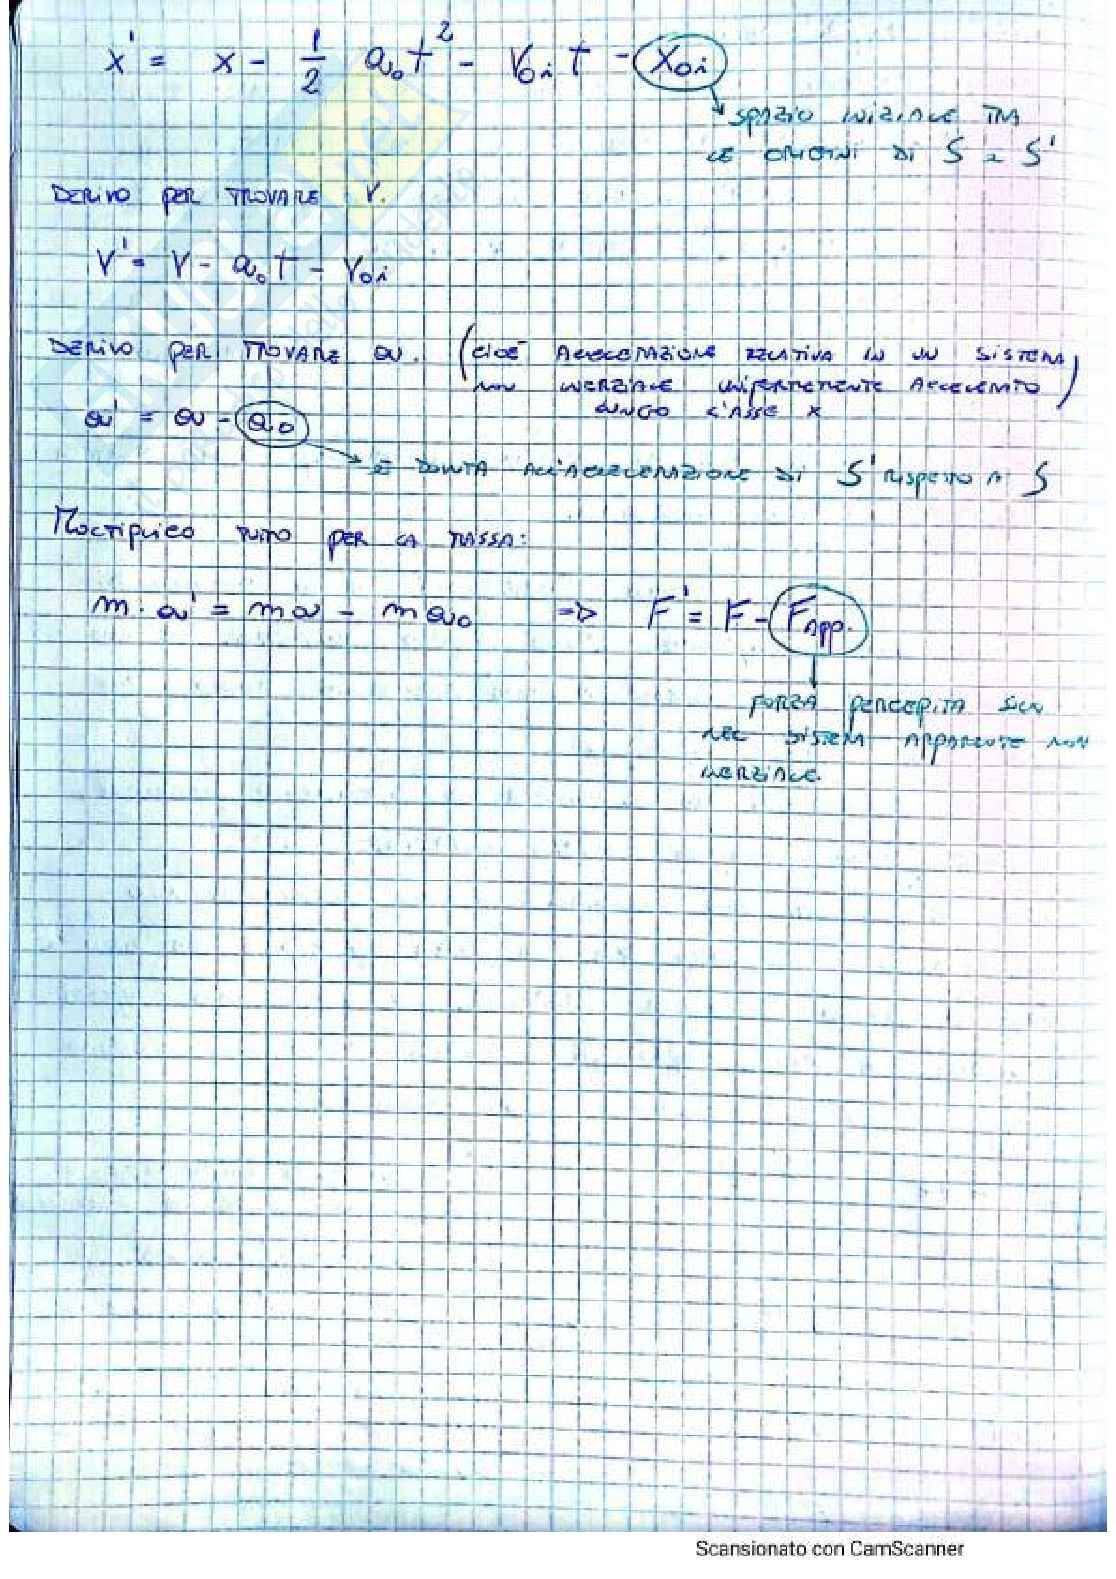 x' = x - 1/2 a₀t² - v₀ᵢ t - x₀ᵢ
SPAZIO INIZIALE TRA
LE ORIGINI DI S e S'
DERIVO PER TROVARE V.
V' = V - a₀t - V₀ᵢ
DERIVO PER TROVARE a. (CIOÈ ACCELERAZIONE RELATIVA IN UN SISTEMA
NON INERZIALE UNIFORMEMENTE ACCELERATO
LUNGO L'ASSE X)
a' = a - a₀
È DOVUTA ALL'ACCELERAZIONE DI S' RISPETTO A S
MOLTIPLICO TUTTO PER LA MASSA:
m · a' = ma - ma₀ => F' = F - F APP.
FORZA PERCEPITA SOLO
NEL SISTEMA APPARENTE NON
INERZIALE.
Scansionato con CamScanner